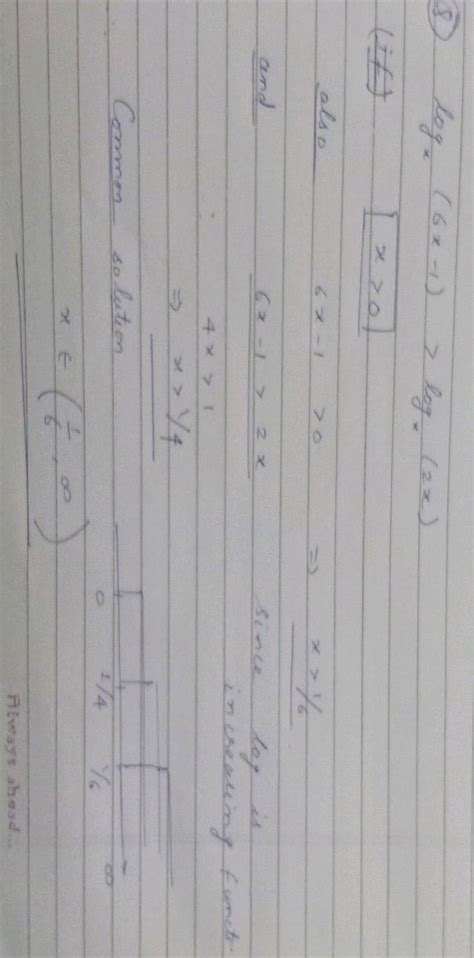 8 log_x (6x-1) > log_x (2x)
(if) [x>0]
also 6x-1 >0 ⇒ x > 1/6
and 6x-1 > 2x since log is
increasing functn.
4x > 1
⇒ x > 1/4
Common solution
0 1/4 1/6 ∞
x ∈ (1/6, ∞)
Always ahead...